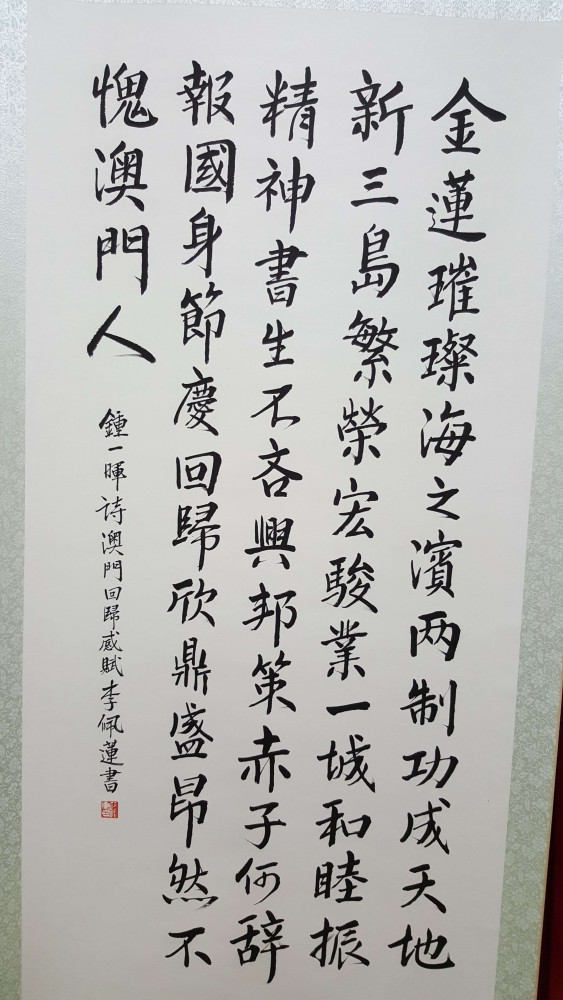 金蓮璀璨海之濱两制功成天地
新三島繁榮宏駿業一城和睦振
精神書生不吝興邦策赤子何辞
報國身節慶回歸欣鼎盛昂然不
愧澳門人
鍾一暉詩澳門回歸感賦李佩蓮書